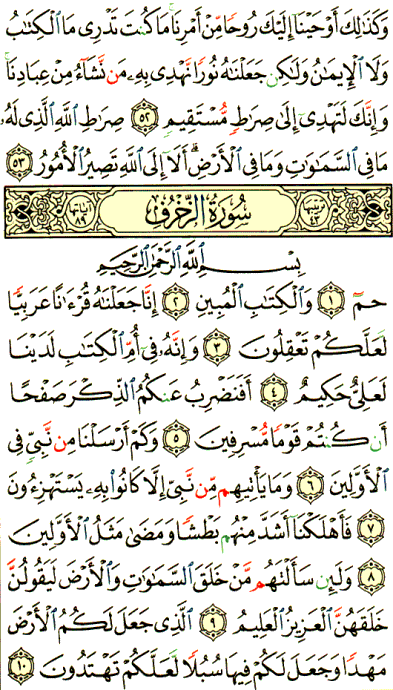 وَكَذَٰلِكَ أَوْحَيْنَآ إِلَيْكَ رُوحًا مِّنْ أَمْرِنَا ۚ مَا كُنتَ تَدْرِى مَا ٱلْكِتَـٰبُ
وَلَا ٱلْإِيمَـٰنُ وَلَـٰكِن جَعَلْنَـٰهُ نُورًا نَّهْدِى بِهِۦ مَن نَّشَآءُ مِنْ عِبَادِنَا ۚ
وَإِنَّكَ لَتَهْدِىٓ إِلَىٰ صِرَٰطٍ مُّسْتَقِيمٍ ٥٢ صِرَٰطِ ٱللَّهِ ٱلَّذِى لَهُۥ
مَا فِى ٱلسَّمَـٰوَٰتِ وَمَا فِى ٱلْأَرْضِ ۗ أَلَآ إِلَى ٱللَّهِ تَصِيرُ ٱلْأُمُورُ ٥٣
ترتيبها ٤٣ سُورَةُ الزُّخْرُفِ آياتها ٨٩
بِسْمِ ٱللَّهِ ٱلرَّحْمَـٰنِ ٱلرَّحِيمِ
حمٓ ١ وَٱلْكِتَـٰبِ ٱلْمُبِينِ ٢ إِنَّا جَعَلْنَـٰهُ قُرْءَٰنًا عَرَبِيًّا
لَّعَلَّكُمْ تَعْقِلُونَ ٣ وَإِنَّهُۥ فِىٓ أُمِّ ٱلْكِتَـٰبِ لَدَيْنَا
لَعَلِىٌّ حَكِيمٌ ٤ أَفَنَضْرِبُ عَنكُمُ ٱلذِّكْرَ صَفْحًا
أَن كُنتُمْ قَوْمًا مُّسْرِفِينَ ٥ وَكَمْ أَرْسَلْنَا مِن نَّبِىٍّ فِى
ٱلْأَوَّلِينَ ٦ وَمَا يَأْتِيهِم مِّن نَّبِىٍّ إِلَّا كَانُوا۟ بِهِۦ يَسْتَهْزِءُونَ
٧ فَأَهْلَكْنَآ أَشَدَّ مِنْهُم بَطْشًا وَمَضَىٰ مَثَلُ ٱلْأَوَّلِينَ
٨ وَلَئِن سَأَلْتَهُم مَّنْ خَلَقَ ٱلسَّمَـٰوَٰتِ وَٱلْأَرْضَ لَيَقُولُنَّ
خَلَقَهُنَّ ٱلْعَزِيزُ ٱلْعَلِيمُ ٩ ٱلَّذِى جَعَلَ لَكُمُ ٱلْأَرْضَ
مَهْدًا وَجَعَلَ لَكُمْ فِيهَا سُبُلًا لَّعَلَّكُمْ تَهْتَدُونَ ١٠